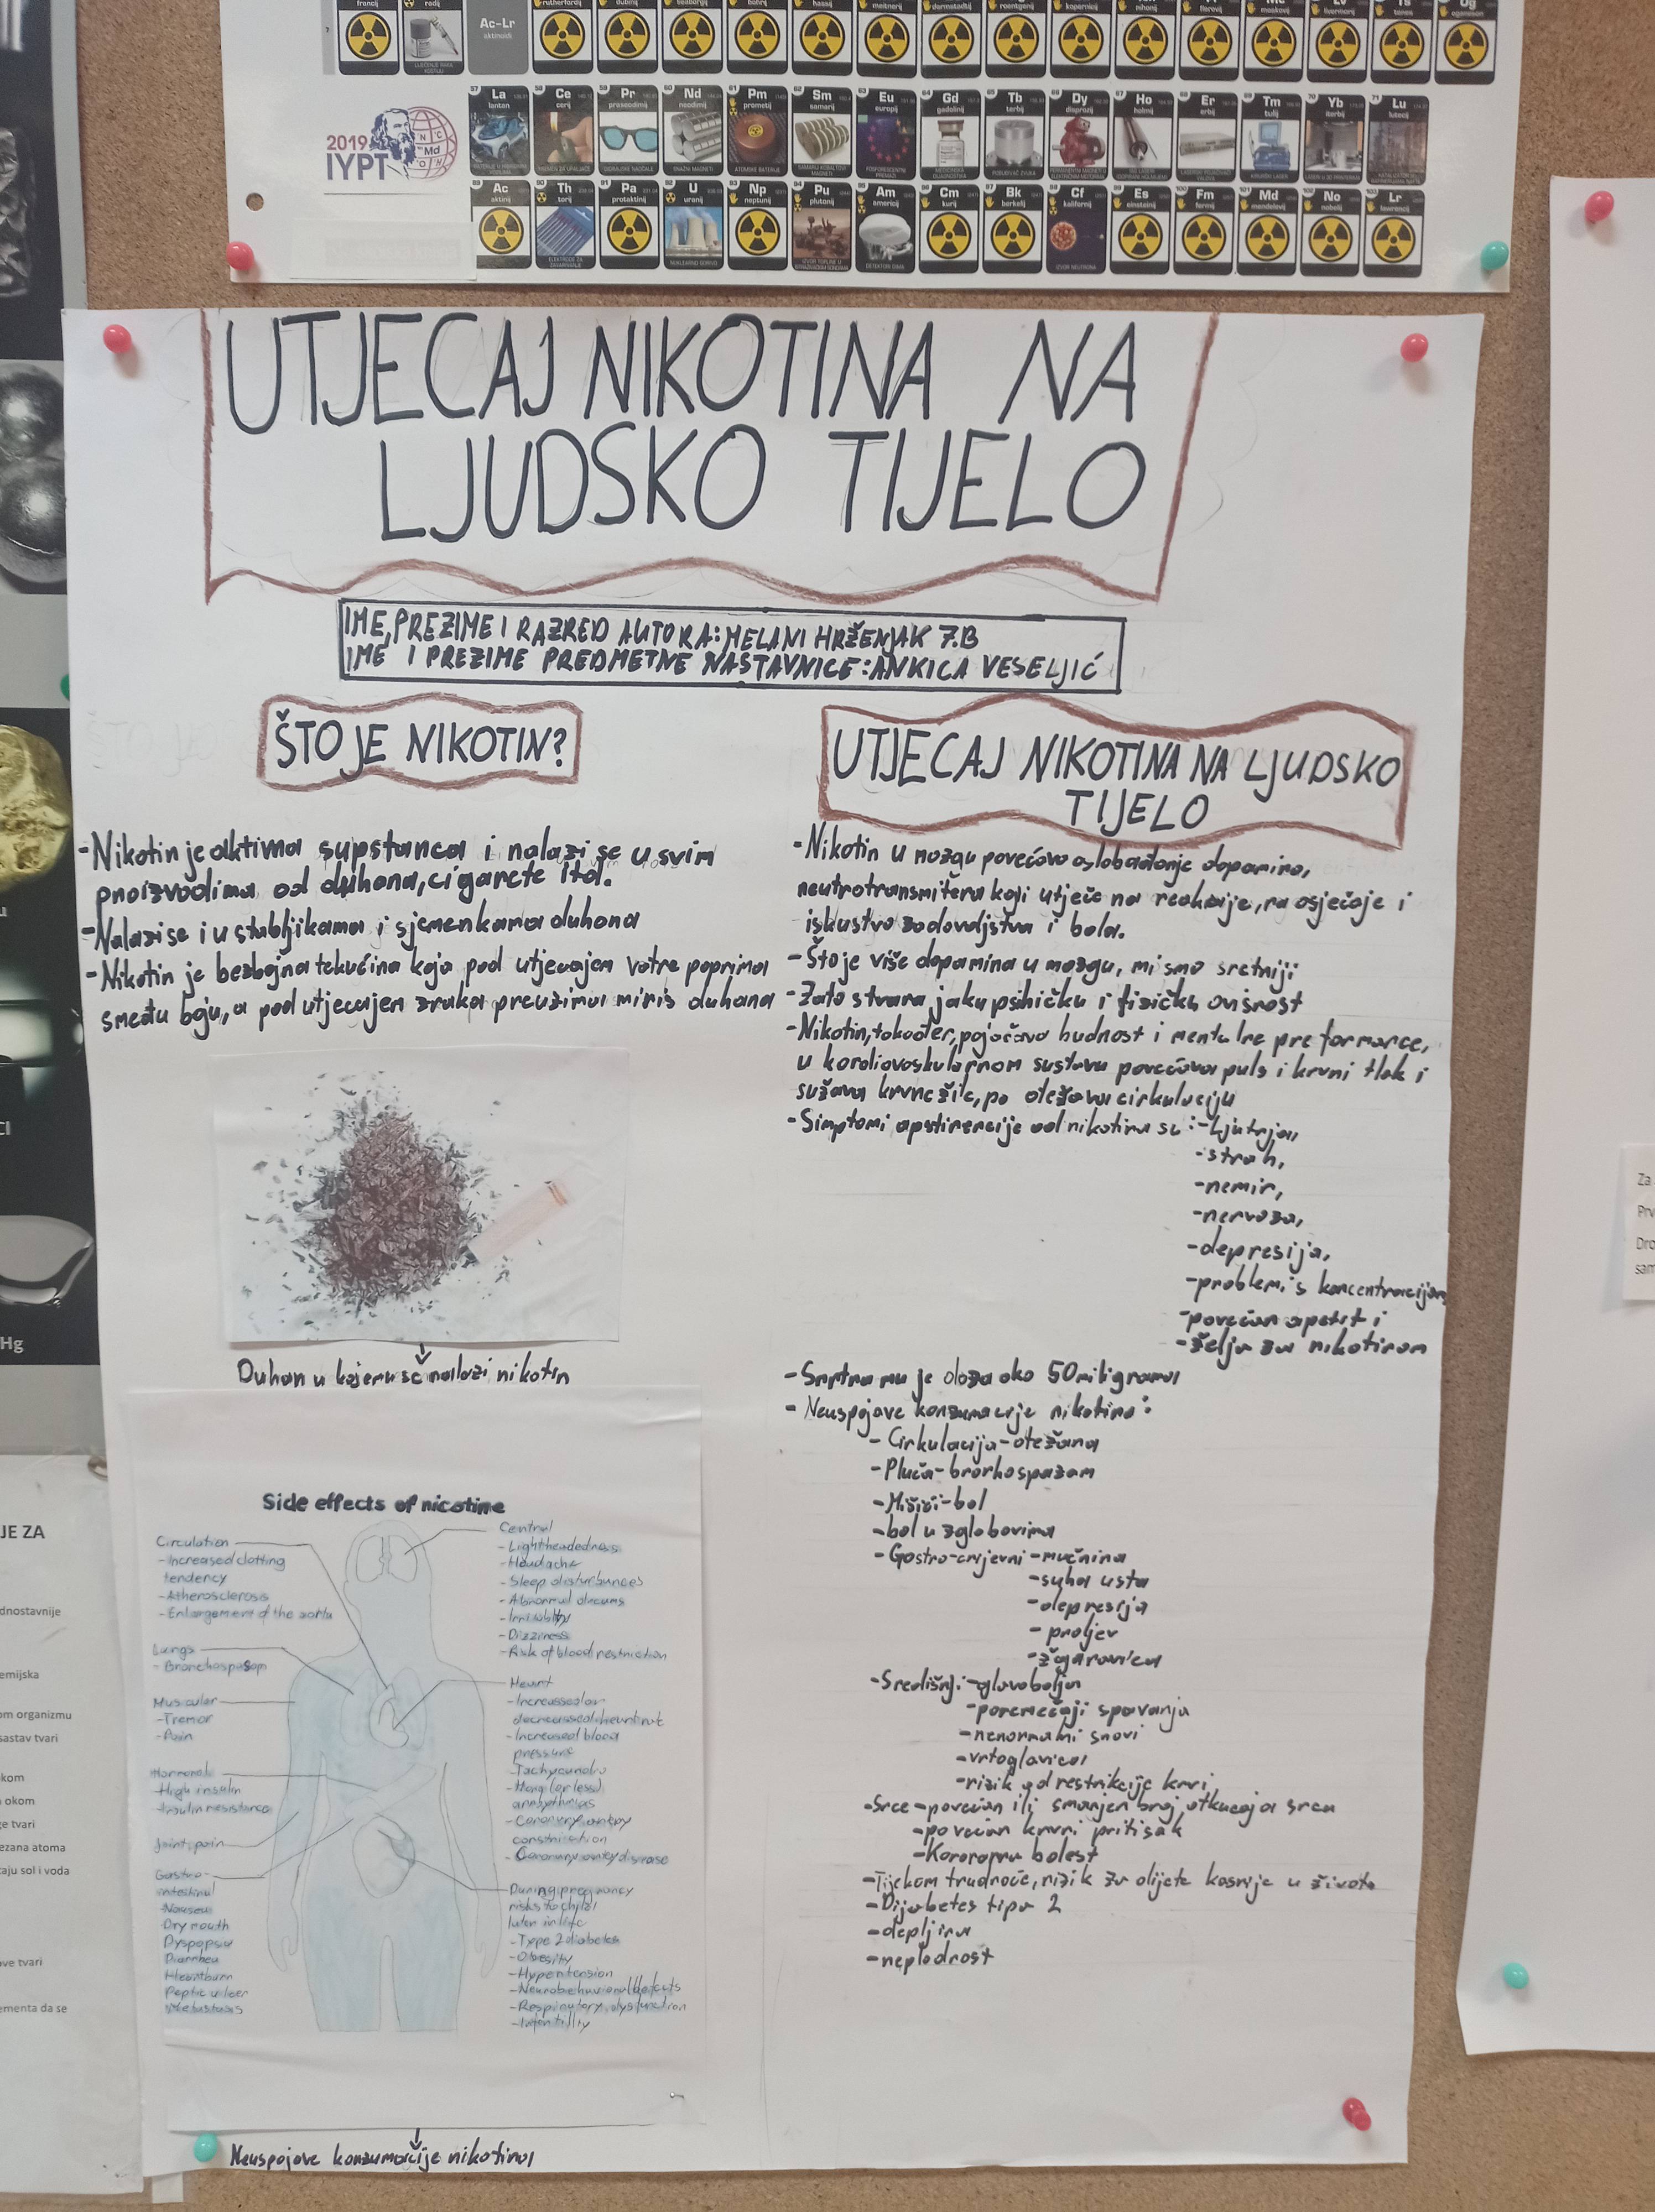 2019
IYPT
Ac-Lr
aktinoidi
La
lantan
Ce
cerij
Pr
praseodimij
Nd
neodimij
Pm
prometij
Sm
samarij
Eu
europij
Gd
gadolinij
Tb
terbij
Dy
disprozij
Ho
holmij
Er
erbij
Tm
tulij
Yb
iterbij
Lu
lutecij
Ac
aktinij
Th
torij
Pa
protaktinij
U
uranij
Np
neptunij
Pu
plutonij
Am
americij
Cm
kurij
Bk
berkelij
Cf
kalifornij
Es
einsteinij
Fm
fermij
Md
mendelevij
No
nobelij
Lr
lawrencij
UTJECAJ NIKOTINA NA
LJUDSKO TIJELO
IME, PREZIME I RAZRED AUTORA: MELANI HRŽENJAK 7.B
IME I PREZIME PREDMETNE NASTAVNICE: ANKICA VESELJIĆ
ŠTO JE NIKOTIN?
-Nikotin je aktivna supstanca i nalazi se u svim
proizvodima od duhana, cigarete itd.
-Nalazi se i u stabljikama i sjemenkama duhana
-Nikotin je bezbojna tekućina koja pod utjecajem vatre poprima
smeđu boju, a pod utjecajem zraka preuzima miris duhana
Duhan u kojemu se nalazi nikotin
Side effects of nicotine
Circulation
-Increased clotting
tendency
-Atherosclerosis
-Enlargement of the aorta
Lungs
-Bronchospasm
Muscular
-Tremor
-Pain
Hormonal
-High insulin
-Insulin resistance
Joint pain
Gastro-
intestinal
Nausea
Dry mouth
Dyspepsia
Diarrhea
Heartburn
Peptic ulcer
Central
-Lightheadedness
-Headache
-Sleep disturbances
-Abnormal dreams
-Irritability
-Dizziness
-Risk of blood restriction
Heart
-Increased or
decreased heart rate
-Increased blood
pressure
-Coronary artery
constriction
-Coronary artery disease
During pregnancy
risks to child
later in life
-Type 2 diabetes
-Obesity
-Hypertension
-Respiratory dysfunction
Nuspojave konzumacije nikotina
UTJECAJ NIKOTINA NA LJUDSKO
TIJELO
-Nikotin u mozgu povećava oslobađanje dopamina,
neutrotransmitera koji utječe na reakcije, na osjećaje i
iskustvo zadovoljstva i bola.
-Što je više dopamina u mozgu, mi smo sretniji
-Zato stvara jaku psihičku i fizičku ovisnost
-Nikotin, također, pojačava budnost i mentalne preformance,
u kardiovaskularnom sustavu povećava puls i krvni tlak i
sužava krvne žile, pa otežava cirkulaciju
-Simptomi apstinencije od nikotina su:-Ljutnja,
-strah,
-nemir,
-nervoza,
-depresija,
-problemi s koncentracijom
-povećan apetit i
-želja za nikotinom
-Smrtna mu je doza oko 50 miligrama
-Neuspojave konzumacije nikotina:
-Cirkulacija-otežana
-Pluća-bronhospazam
-Mišići-bol
-bol u zglobovima
-Gastro-crijevni-mučnina
-suha usta
-depresija
-proljev
-žgaravica
-Središnji-glavobolja
-poremećaji spavanja
-nenormalni snovi
-vrtoglavica
-rizik od restrikcije krvi
-Srce-povećan ili smanjen broj otkucaja srca
-povećan krvni pritisak
-Koronarna bolest
-Tijekom trudnoće, rizik za dijete kasnije u životu
-Dijabetes tipa 2
-debljina
-neplodnost
Hg
JE ZA
dnostavnije
emijska
om organizmu
sastav tvari
okom
ezana atoma
taju sol i voda
ementa da se
Za
Prv
Dro
sam